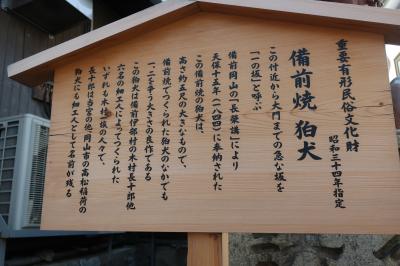 重要有形民俗文化財
昭和三十四年指定
備前焼 狛犬
この付近から大門までの急な坂を
「一の坂」と呼ぶ
備前岡山の「長栄講」により
天保十五年(一八四四)に奉納された
この備前焼の狛犬は、
高さ約五尺の大きなもので、
備前焼でつくられた狛犬のなかでも
一、二を争う大きさの良作である
この狛犬は備前伊部村の木村長十郎他
六名の細工人によってつくられた
いずれも木村一族の人々で、
長十郎は当宮の他、岡山市の高松稲荷の
狛犬にも細工人として名前が残る